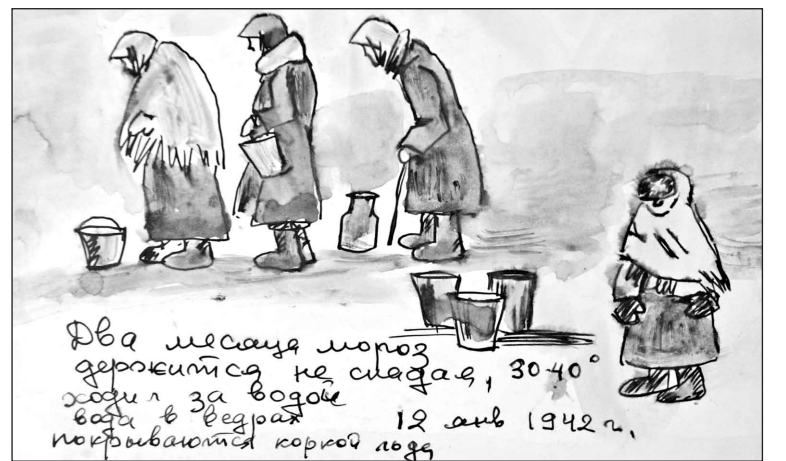 Два месяца мороз
держится не спадая, 30-40°
ходил за водой
вода в ведрах 12 янв 1942 г.
покрываются коркой льда